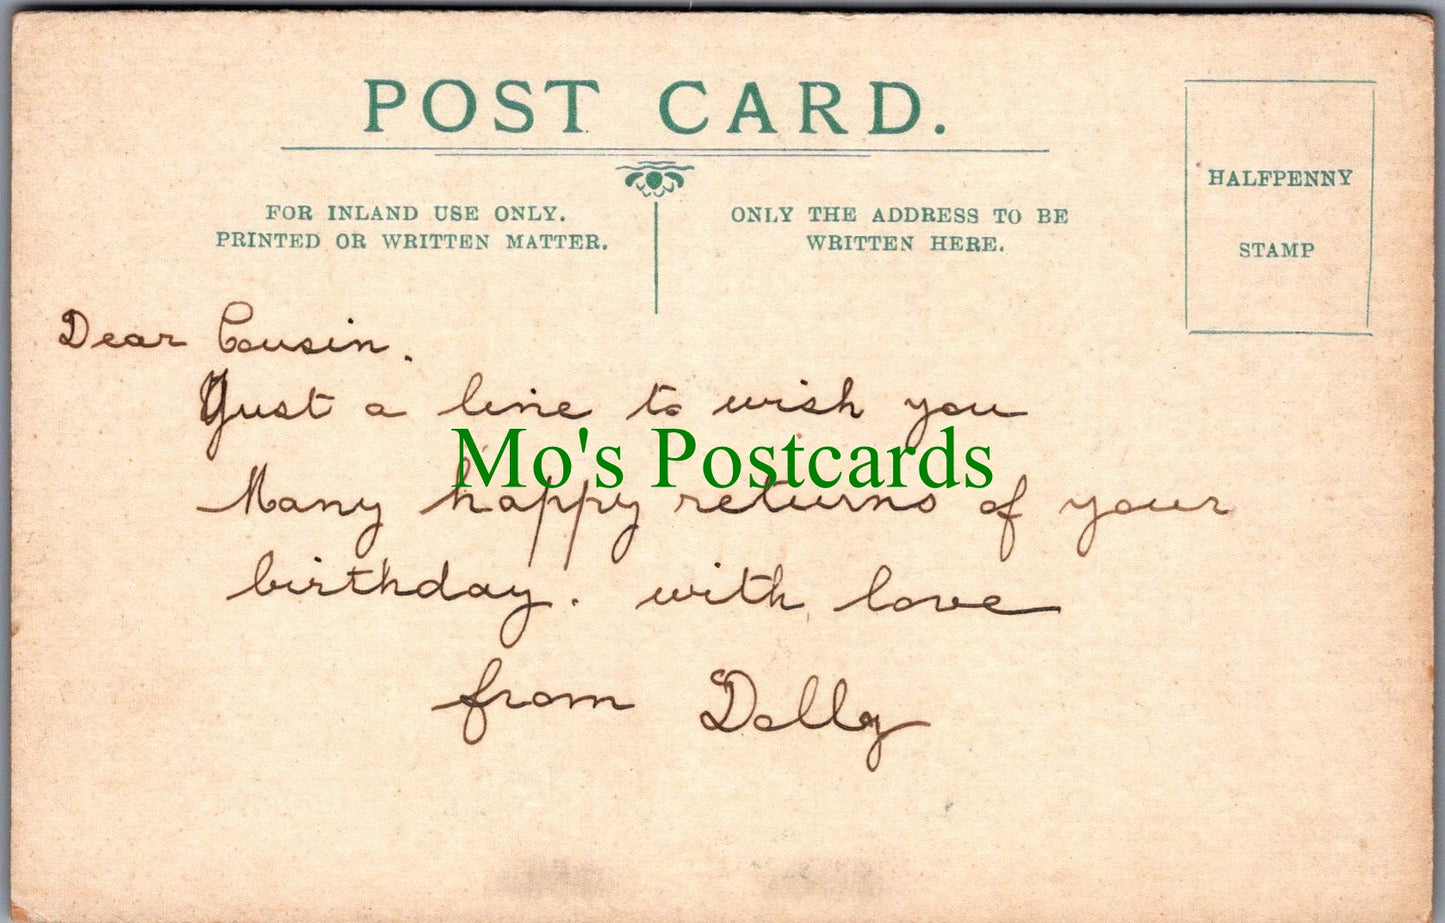 POST CARD.
FOR INLAND USE ONLY.
PRINTED OR WRITTEN MATTER.
ONLY THE ADDRESS TO BE
WRITTEN HERE.
HALFPENNY
STAMP
Dear Cousin.
Just a line to wish you
Mo's Postcards
Many happy returns of your
birthday. with love
from Dolly